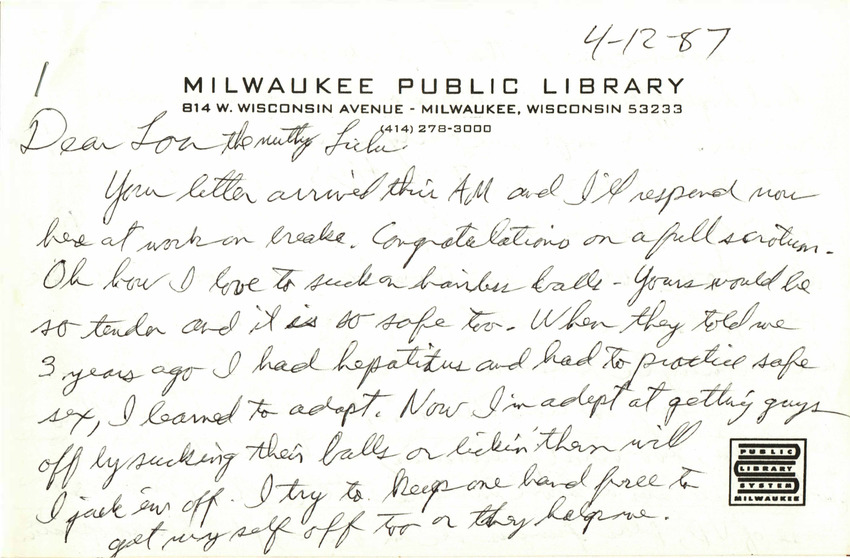 4-12-87
1
MILWAUKEE PUBLIC LIBRARY
814 W. WISCONSIN AVENUE - MILWAUKEE, WISCONSIN 53233
(414) 278-3000
Dear Lou the nutty
Your letter arrived this AM and I'll respond now
here at work on breake. Congratulations on a full scrotum.
Oh how I love to suck on hairless balls - Yours would be
so tender and it is so safe too. When they told me
3 years ago I had hepatitus and had to practice safe
sex, I learned to adapt. Now I'm adept at getting guys
off by sucking their balls or lickin' them will
I jack 'em off. I try to keep one hand free to
get my self off too or they help me.
PUBLIC
LIBRARY
SYSTEM
MILWAUKEE